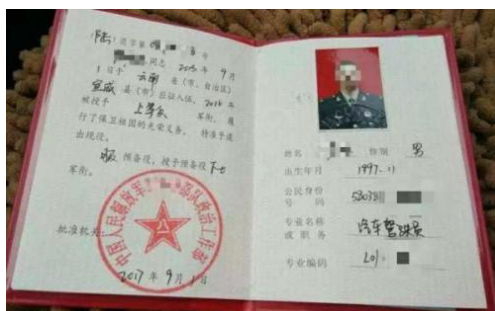 (陆) 退字第
同志 2015 年 9 月
1 日于 云南 省 (市、自治区)
宣威 县 (市) 应征入伍, 2016 年
被授予 上等兵 军衔, 履
行了保卫祖国的光荣义务, 特准予退
出现役。
服 预备役, 授予预备役 下士
军衔。
中国人民解放军 部队政治工作部
批准机关:
2017 年 9 月 1 日
姓名 性别 男
出生年月 1997.11
公民身份
号码 53038
专业名称 汽车驾驶员
或职务
专业编码 201